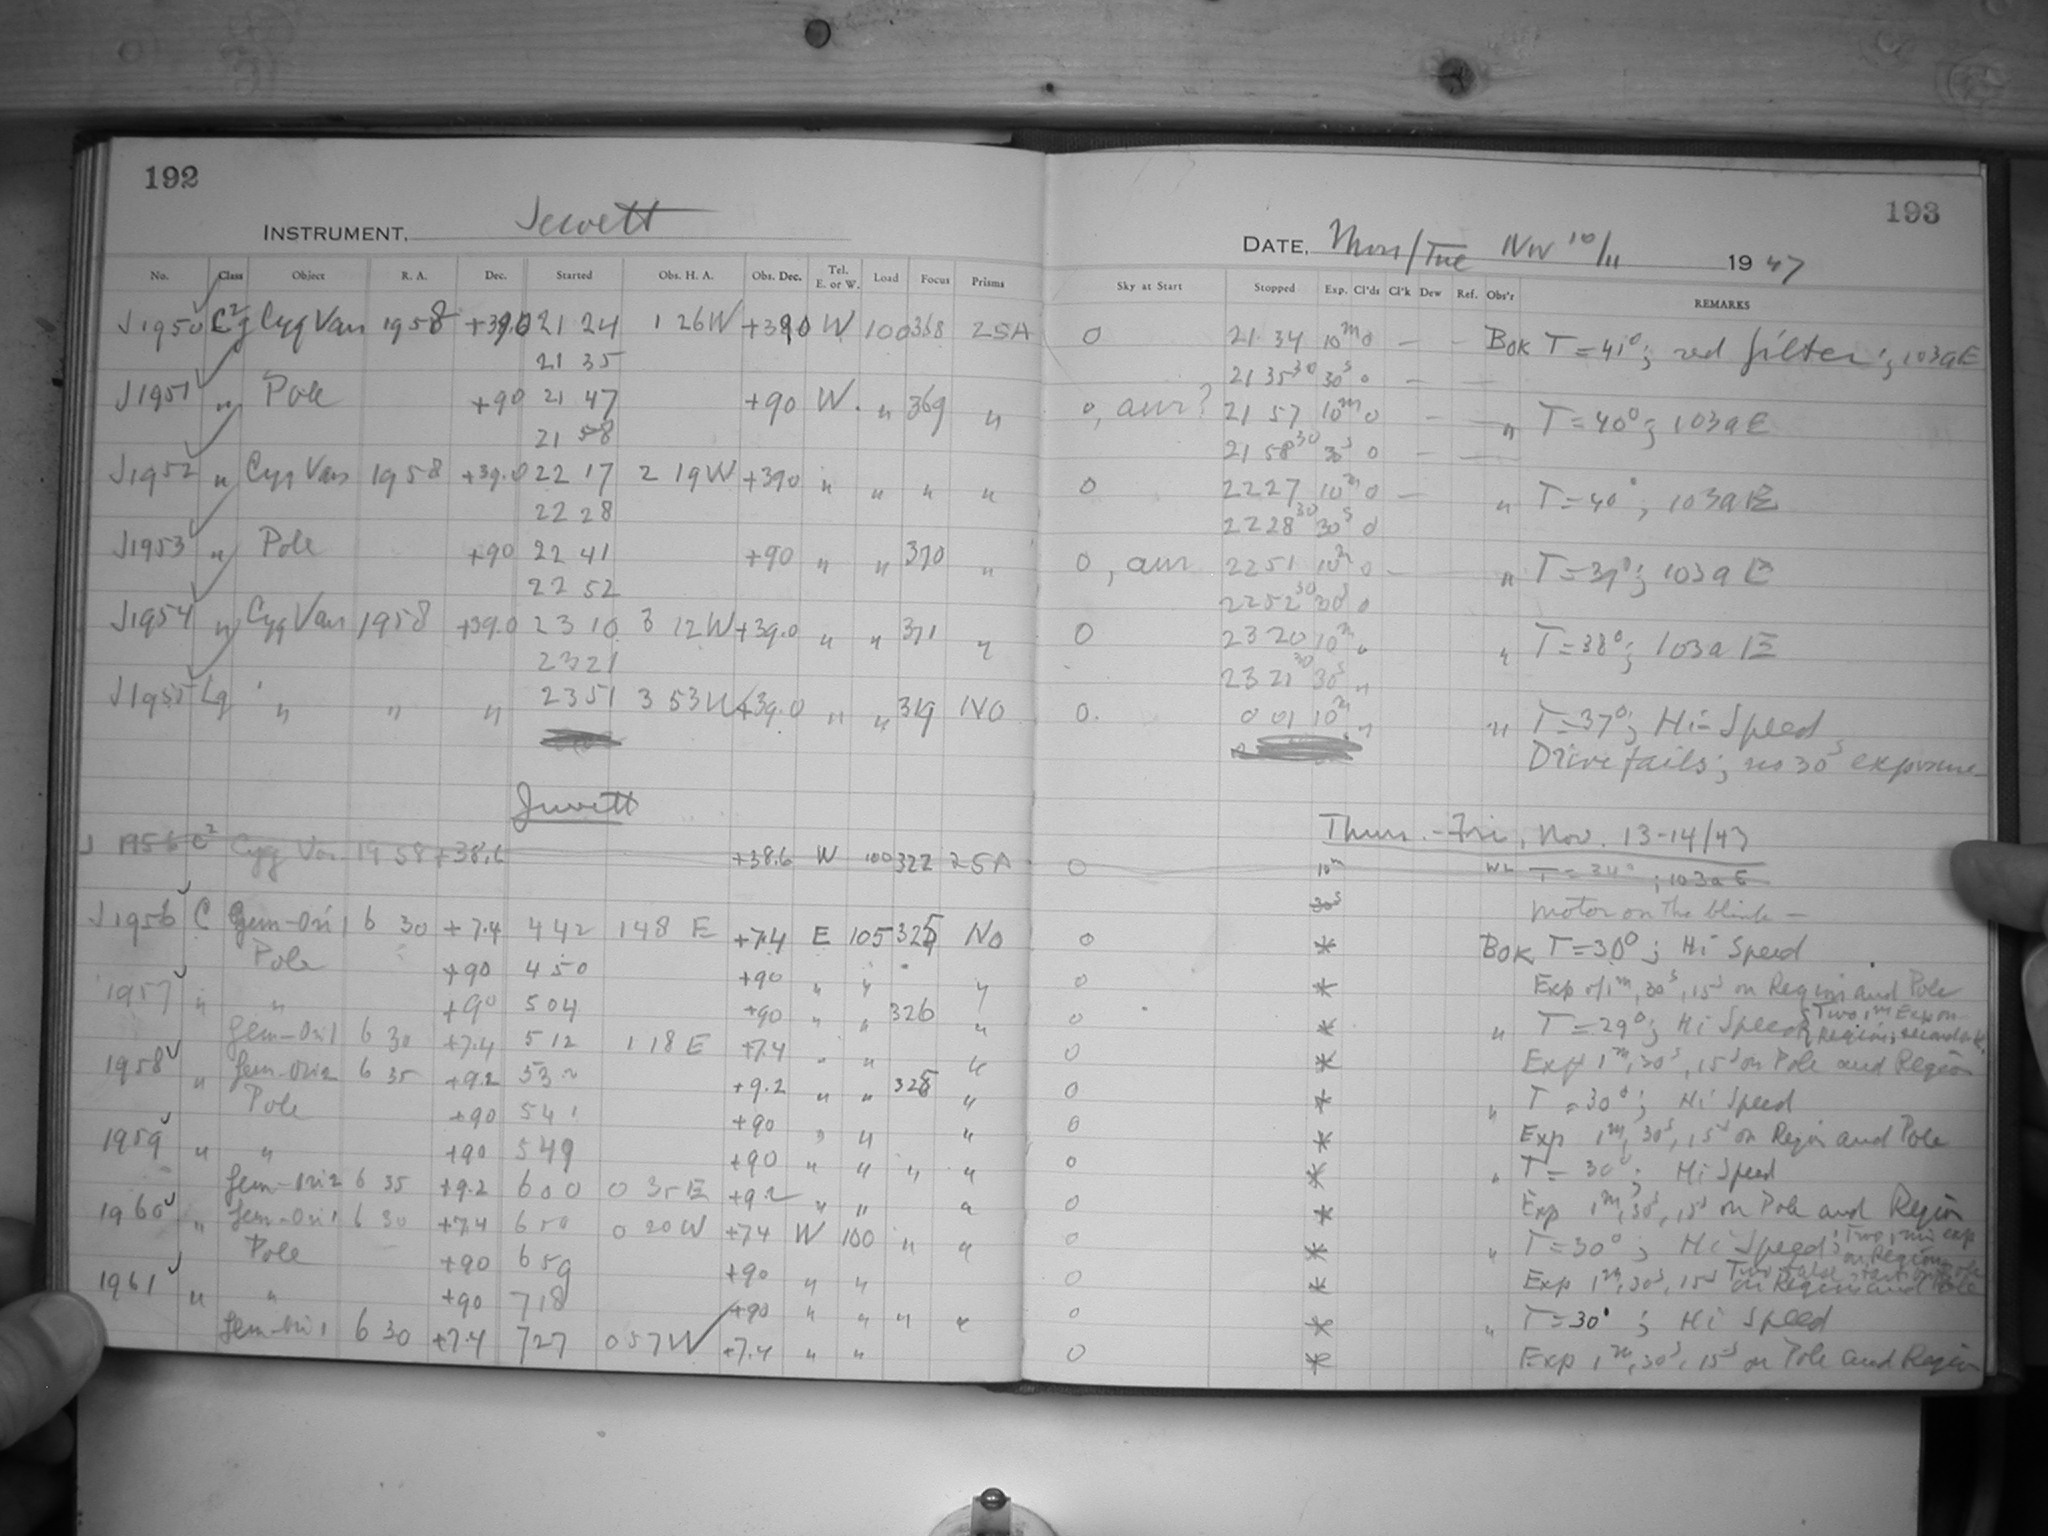 192
INSTRUMENT, Jewett
No. Class Object R. A. Dec. Started Obs. H. A. Obs. Dec. Tel. E. or W. Load Focus Prisms
J1950 Cyg Var 1958 +39.0 21 24 1 26W +390 W 100 368 25A
21 35
J1951 " Pole +90 21 47 +90 W. " 369 "
21 58
J1952 " Cyg Var 1958 +39.0 22 17 2 19W +390 " " " "
22 28
J1953 " Pole +90 22 41 +90 " " 370 "
22 52
J1954 " Cyg Var 1958 +39.0 23 10 3 12W +39.0 " " 371 "
23 21
J1955 Lg " " " 23 51 3 53W +39.0 " " 319 NO
Jewett
J 1956 C2 Cyg Var 1958 +38.6 +38.6 W 100 322 25A
J1956 C Gem-Ori 1 6 30 +7.4 4 42 1 48 E +7.4 E 105 325 No
Pole +90 4 50 +90 " " "
1957 " " +90 5 04 +90 " " 326 "
Gem-Ori 1 6 30 +7.4 5 12 1 18 E +7.4 " " "
1958 " Gem-Ori 2 6 35 +9.2 53 +9.2 " " 328 "
Pole +90 5 41 +90 " " "
1959 " " +90 5 49 +90 " " " "
Gem-Ori 2 6 35 +9.2 6 00 0 35 E +9.2 " " "
1960 " Gem-Ori 1 6 30 +7.4 6 50 0 20 W +7.4 W 100 " "
Pole +90 6 59 +90 " "
1961 " " +90 7 18 +90 " " " "
Gem-Ori 1 6 30 +7.4 7 27 0 57 W +7.4 " "
193
DATE, Mon/Tue Nov 10/11 1947
Sky at Start Stopped Exp. Cl'ds Cl'k Dew Ref. Obs'r REMARKS
0 21 34 10m 0 — – Bok T = 41°; red filter; 103aE
21 35 30 30s 0 — —
0, aur? 21 57 10m 0 – – " T = 40°; 103aE
21 58 30 30s 0 – —
0 22 27 10m 0 — " T = 40°, 103aE
22 28 30 30s 0
0, aur 22 51 10m 0 — " T = 39°; 103aE
22 52 30 30s 0
0 23 20 10m " " T = 38°; 103aE
23 21 30 30s "
0. 0 01 10m " " T = 37°; Hi-Speed
Drive fails; no 30s exposure
Thurs.-Fri, Nov. 13-14/47
0 10m T = ; 103aE
30s motor on the blink —
0 * Bok T = 30°; Hi Speed
0 * Exp of 1m, 30s, 15s on Region and Pole
0 * " T = 29°; Hi Speed { Two 1m Exp on Region;
0 * Exp 1m, 30s, 15s on Pole and Region
0 * " T = 30°; Hi Speed
0 * Exp 1m, 30s, 15s on Region and Pole
0 * " T = 30°; Hi Speed
0 * Exp 1m, 30s, 15s on Pole and Region
0 * " T = 30°; Hi Speed; Two 1 min exp on Region
0 * Exp 1m, 30s, 15s on Region and Pole
0 * " T = 30°; Hi Speed
0 * Exp 1m, 30s, 15s on Pole and Region